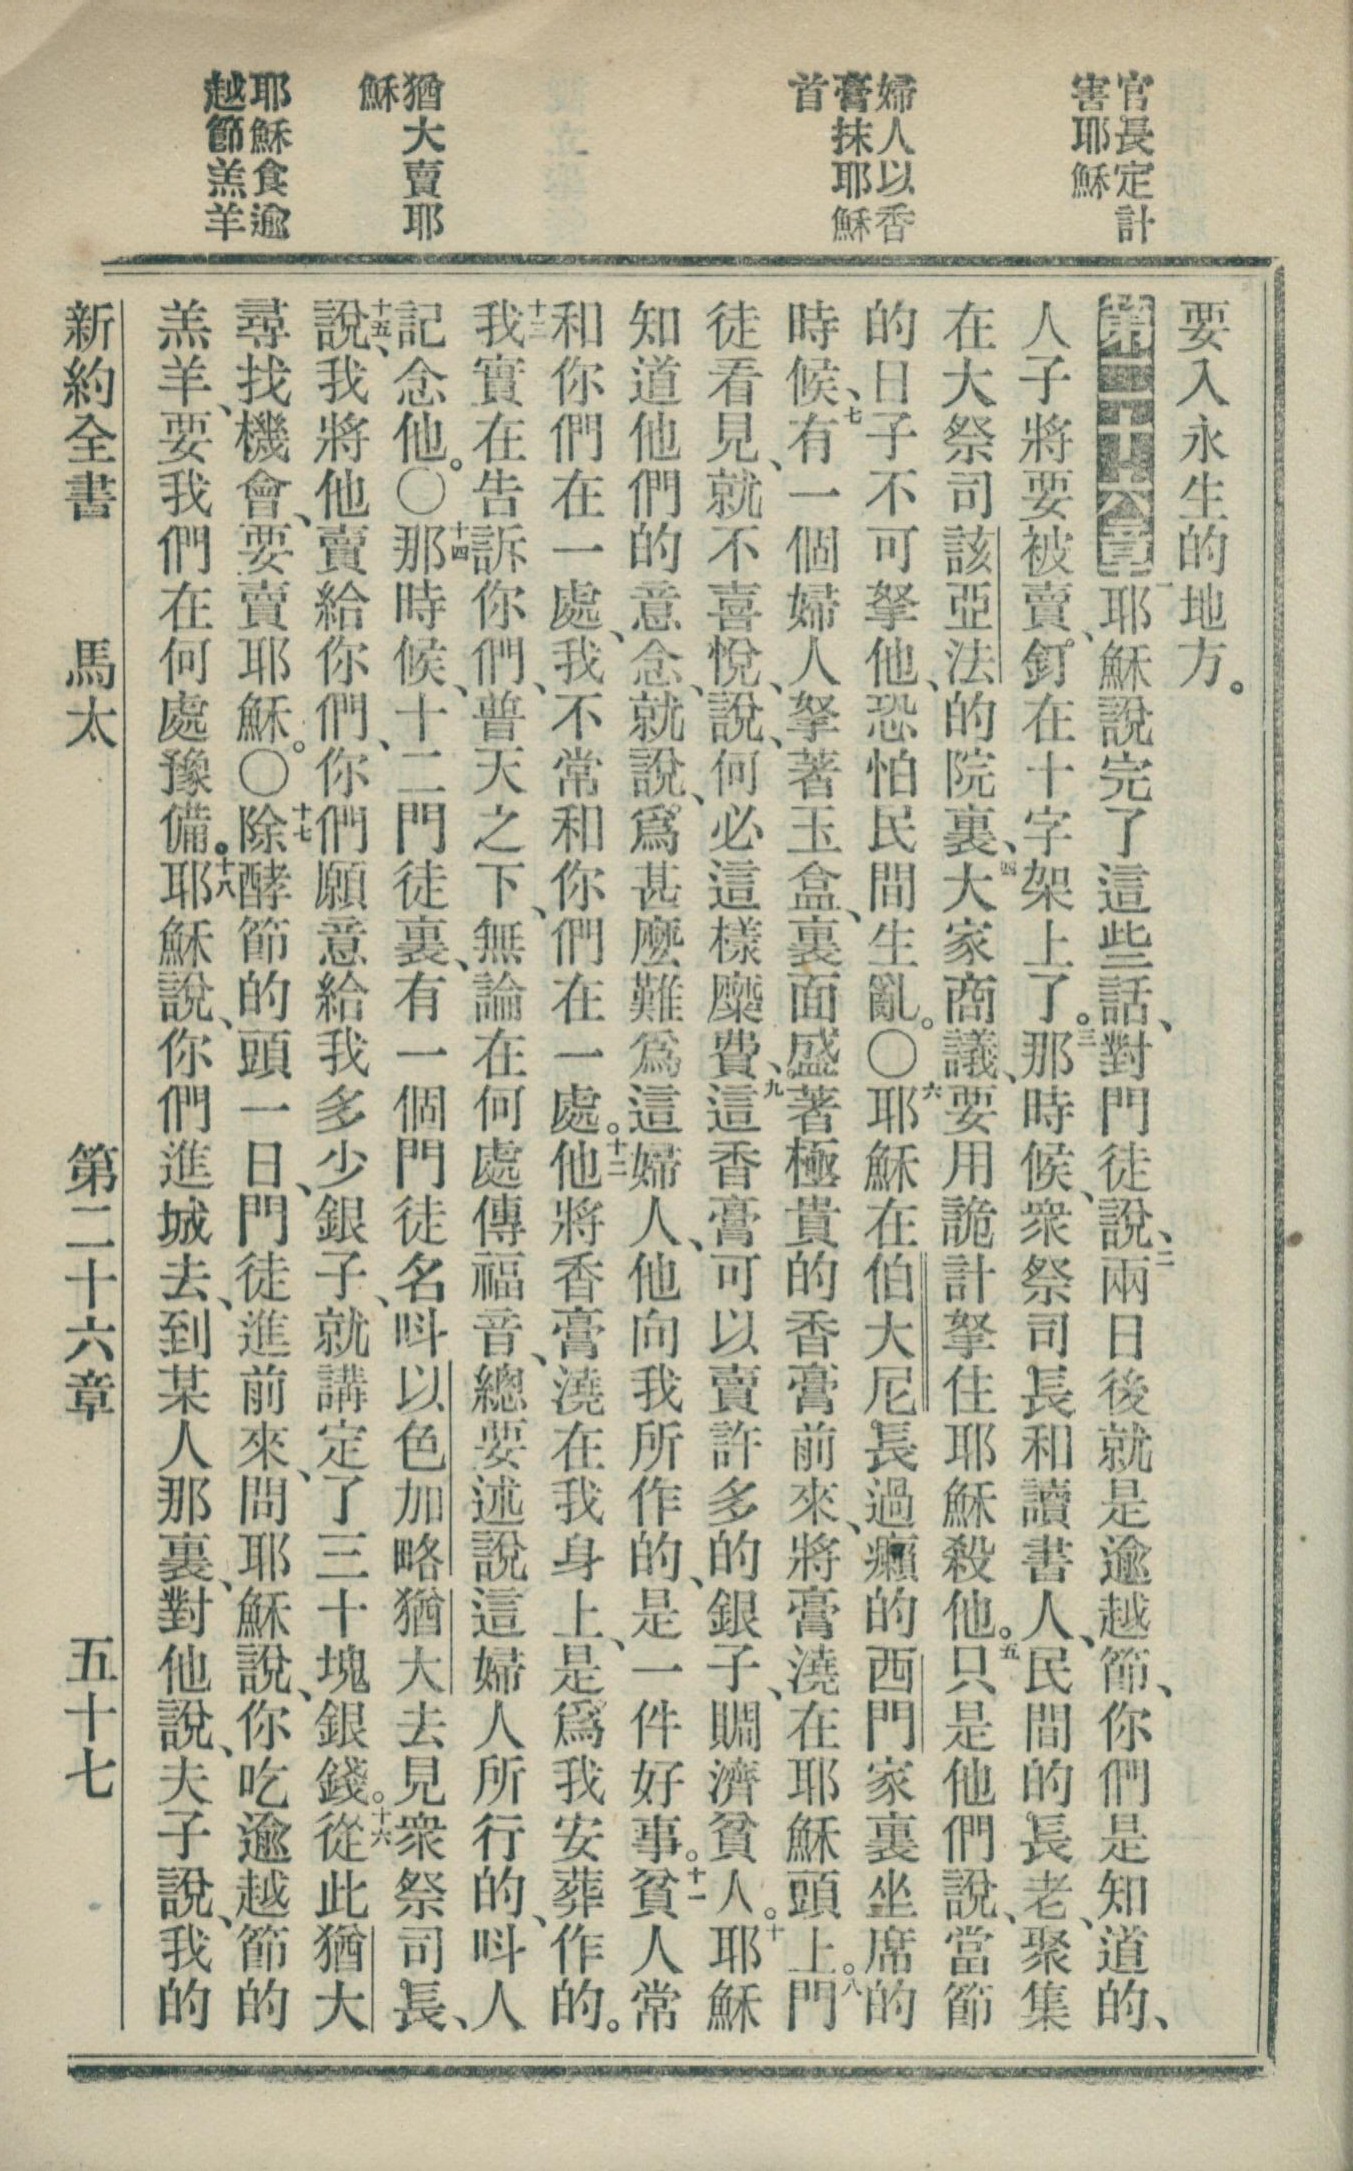 官長定計
害耶穌
婦人以香
膏抹耶穌
首
猶大賣耶
穌
耶穌食逾
越節羔羊
要入永生的地方。
第二十六章一耶穌說完了這些話、對門徒說、二兩日後就是逾越節、你們是知道的、
人子將要被賣、釘在十字架上了。三那時候、衆祭司長和讀書人、民間的長老、聚集
在大祭司該亞法的院裏、四大家商議、要用詭計拏住耶穌殺他。五只是他們說、當節
的日子不可拏他、恐怕民間生亂。〇六耶穌在伯大尼長過癩的西門家裏坐席的
時候、七有一個婦人拏著玉盒、裏面盛著極貴的香膏前來、將膏澆在耶穌頭上。八門
徒看見、就不喜悅、說、何必這樣糜費、九這香膏可以賣許多的銀子、賙濟貧人。十耶穌
知道他們的意念、就說、爲甚麼難爲這婦人、他向我所作的、是一件好事。十一貧人常
和你們在一處、我不常和你們在一處。十二他將香膏澆在我身上、是爲我安葬作的。
十三我實在告訴你們、普天之下、無論在何處傳福音、總要述說這婦人所行的、呌人
記念他。〇十四那時候、十二門徒裏、有一個門徒名呌以色加略猶大去見衆祭司長、
十五說、我將他賣給你們、你們願意給我多少銀子、就講定了三十塊銀錢。十六從此猶大
尋找機會、要賣耶穌。〇十七除酵節的頭一日、門徒進前來、問耶穌說、你吃逾越節的
羔羊、要我們在何處豫備。十八耶穌說、你們進城去、到某人那裏、對他說、夫子說、我的
新約全書 馬太 第二十六章 五十七